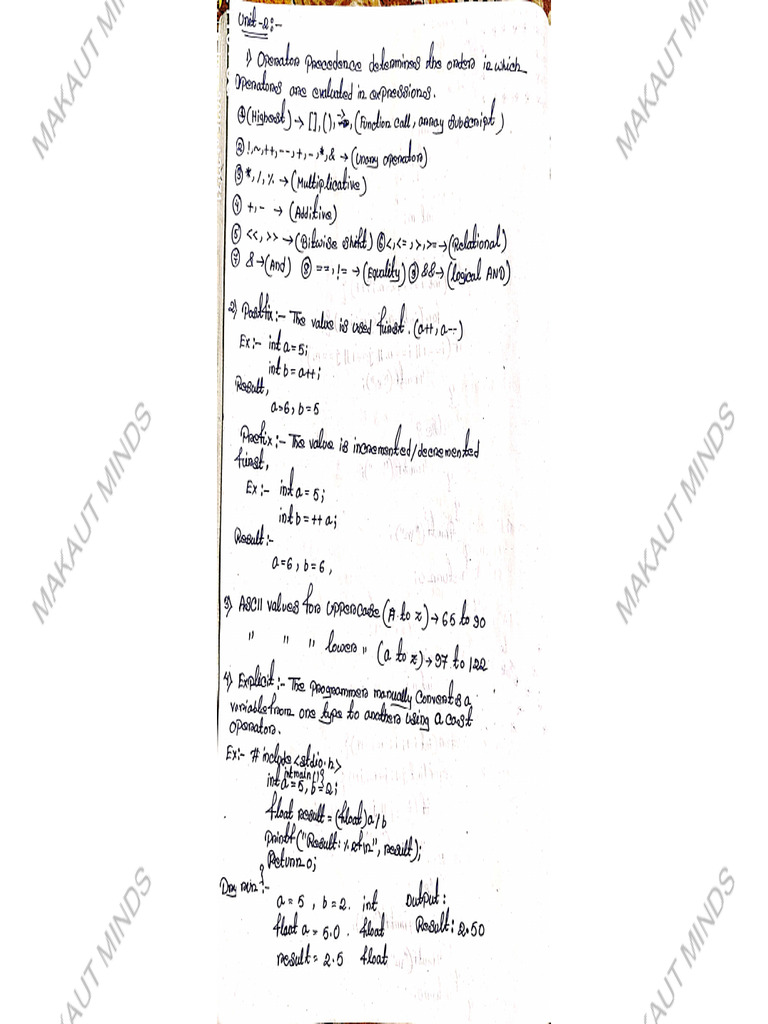 MAKAUT MINDS
MAKAUT MINDS
Unit-2:-
1) Operator Precedence determines the orders in which
Operators are evaluated in expressions.
① (Highest) → [], (), →, (Function call, array subscript)
② !, ~, ++, --, +, -, *, & → (Unary operator)
③ *, /, % → (Multiplicative)
④ +, - → (Additive)
⑤ <<, >> → (Bitwise shift) ⑥ <, <=, >, >= → (Relational)
⑦ & → (And) ⑧ ==, != → (Equality) ⑨ && → (logical AND)
2) Postfix :- The value is used first. (a++, a--)
Ex:- int a = 5;
int b = a++;
Result,
a=6, b=5
MAKAUT MINDS
MAKAUT MINDS
Prefix :- The value is incremented/decremented
first,
Ex :- int a = 5;
int b = ++a;
Result:-
a=6, b=6,
3) ASCII values for uppercase (A to z) → 65 to 90
" " " lower " (a to z) → 97 to 122
4) Explicit :- The programmer manually converts a
variable from one type to another using a cast
operator.
Ex:- #include <stdio.h>
int main(){
int a = 5, b = 2;
float result = (float)a/b
printf("Result: %.2f\n", result);
Return 0;
}
Dry run :-
a = 5, b = 2. int Output:
float a = 5.0. float Result: 2.50
result = 2.5 float
MAKAUT MINDS
MAKAUT MINDS